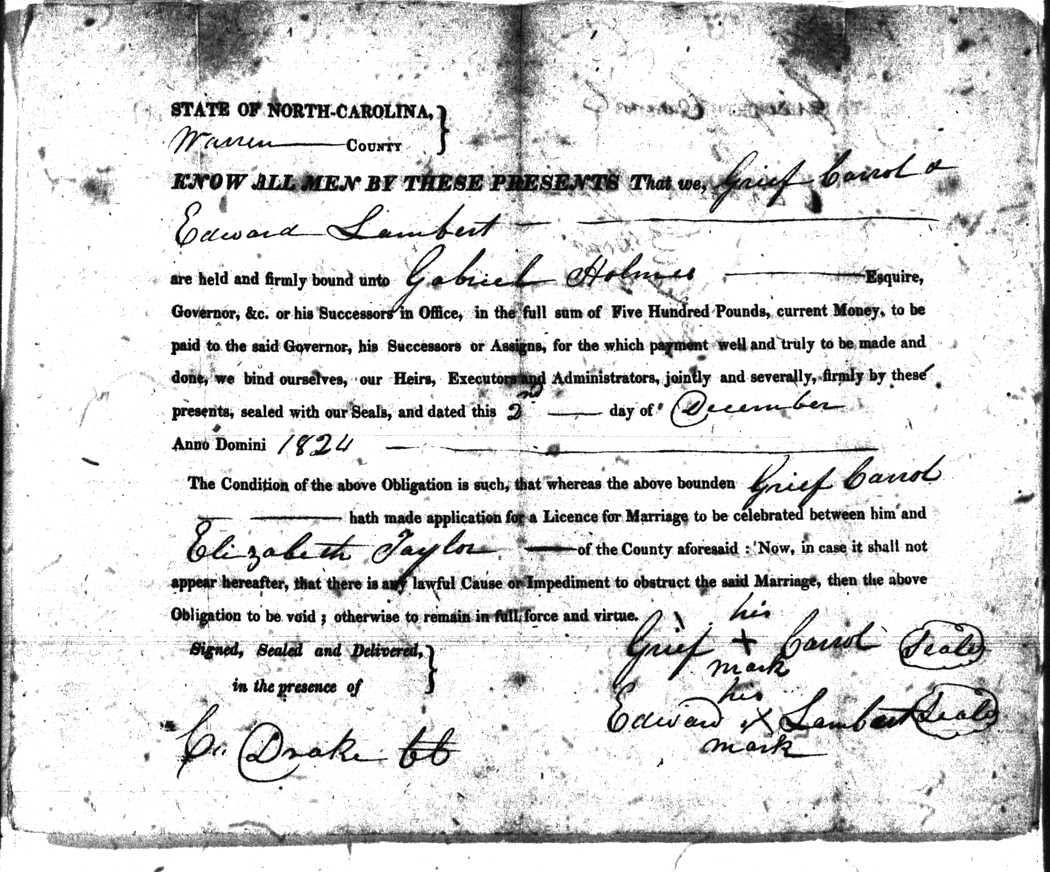 STATE OF NORTH-CAROLINA, }
Warren COUNTY
KNOW ALL MEN BY THESE PRESENTS That we, Grief Carrol &
Edward Lambert
are held and firmly bound unto Gabriel Holmes Esquire,
Governor, &c. or his Successors in Office, in the full sum of Five Hundred Pounds, current Money, to be
paid to the said Governor, his Successors or Assigns, for the which payment well and truly to be made and
done, we bind ourselves, our Heirs, Executors and Administrators, jointly and severally, firmly by these
presents, sealed with our Seals, and dated this 2nd day of December
Anno Domini 1824
The Condition of the above Obligation is such, that whereas the above bounden Grief Carrol
hath made application for a Licence for Marriage to be celebrated between him and
Elizabeth Taylor of the County aforesaid : Now, in case it shall not
appear hereafter, that there is any lawful Cause or Impediment to obstruct the said Marriage, then the above
Obligation to be void ; otherwise to remain in full force and virtue.
his
Signed, Sealed and Delivered, } Grief + Carrol Seal
mark
in the presence of
his
Edward x Lambert Seal
mark
C. Drake